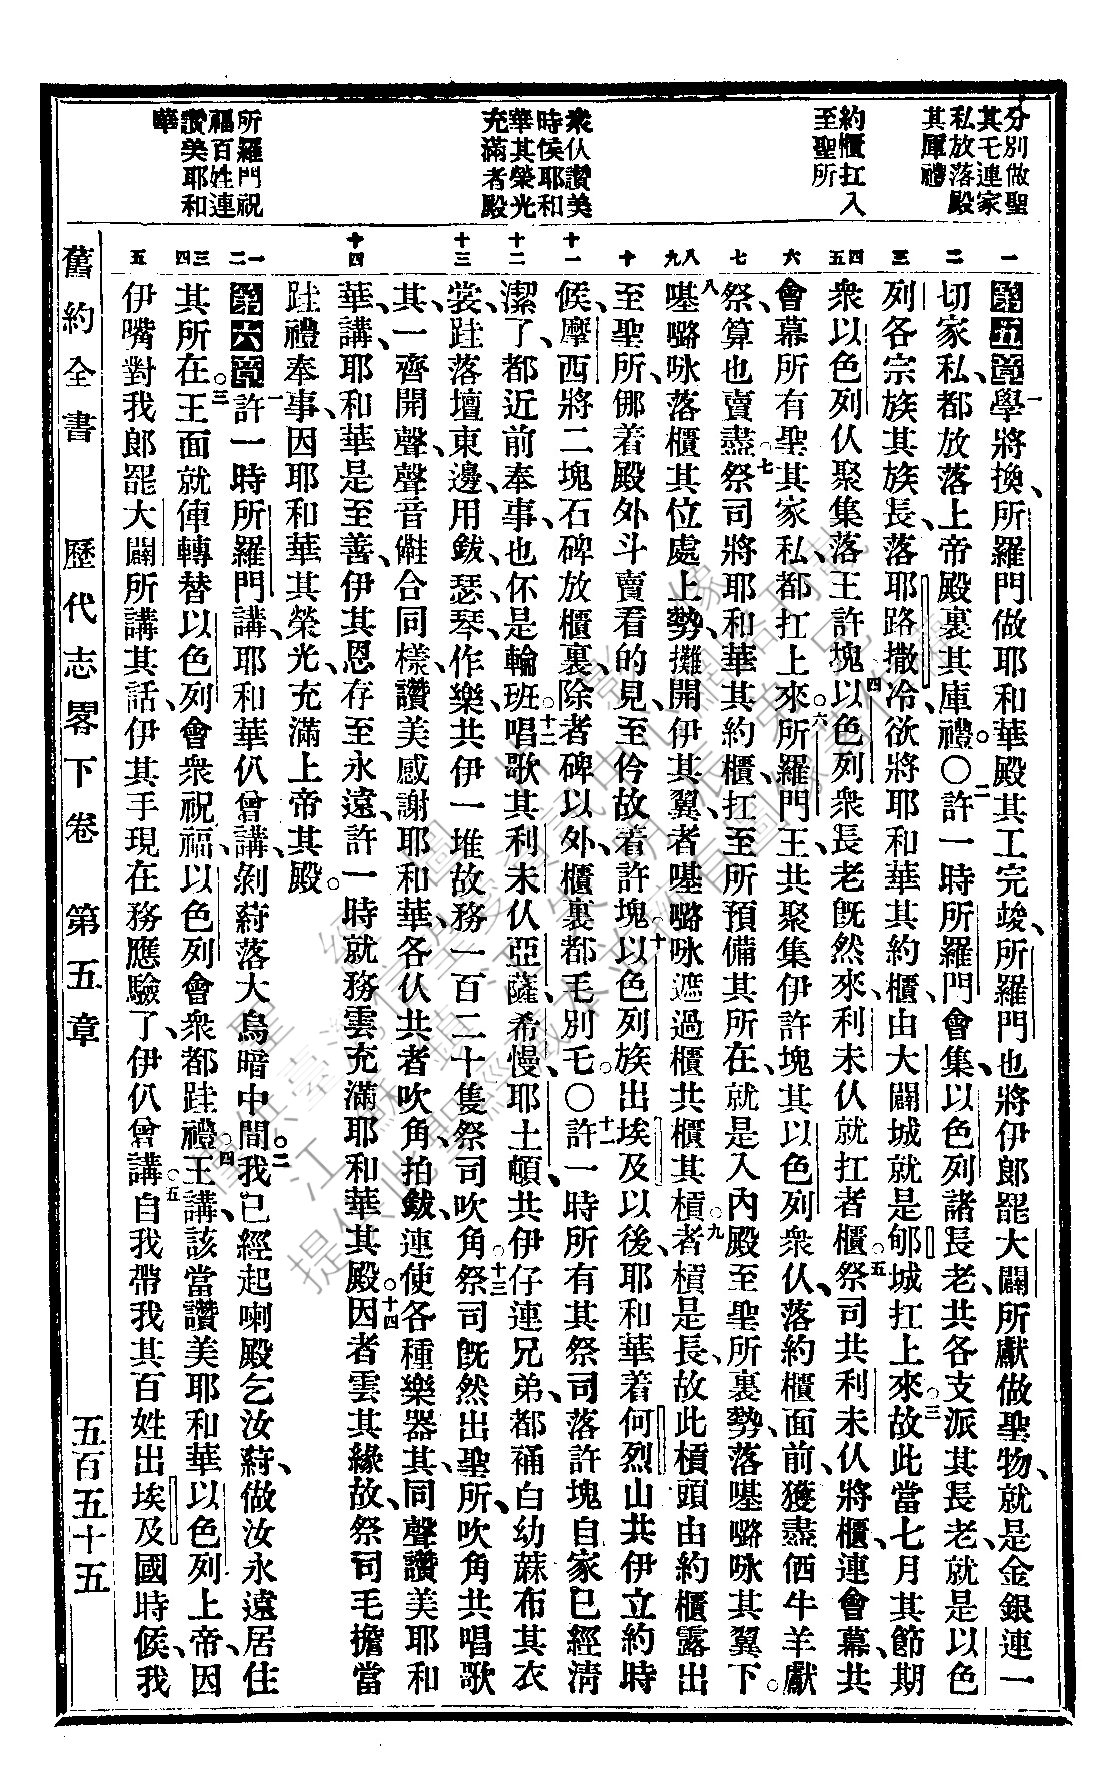 分別做聖
其乇連家
私放落殿
其庫禮
約櫃扛入
至聖所
衆仈讚美
時候耶和
華其榮光
充滿者殿
所羅門祝
福百姓連
讚美耶和
華
一
二
三
四五
六
七
八九
十
十一
十二
十三
十四
一二
三四
五
第五章一學將換、所羅門做耶和華殿其工完竣、所羅門也將伊郎罷大闢所獻做聖物、就是金銀連一
切家私、都放落上帝殿裏其庫禮。○二許一時所羅門會集以色列諸長老共各支派其長老就是以色
列各宗族其族長、落耶路撒冷欲將耶和華其約櫃、由大闢城就是郇城扛上來。三故此當七月其節期、
衆以色列仈聚集落王許塊。四以色列衆長老旣然來、利未仈就扛者櫃。五祭司共利未仈將櫃連會幕共
會幕所有聖其家私、都扛上來。六所羅門王共聚集伊許塊其以色列衆仈、落約櫃面前、獲盡価牛羊獻
祭、算也賣盡。七祭司將耶和華其約櫃、扛至所預備其所在、就是入內殿至聖所裏、勢落𠸄嚕咏其翼下。
八𠸄嚕咏落櫃其位處上勢、攤開伊其翼、者𠸄嚕咏遮過櫃共櫃其槓。九者槓是長、故此槓頭由約櫃露出
至聖所、㑚着殿外斗賣看的見、至伶故着許塊。十以色列族出埃及以後、耶和華着何烈山共伊立約時
候、摩西將二塊石碑放櫃裏、除者碑以外、櫃裏都毛別乇。○十一許一時所有其祭司落許塊自家已經淸
潔了、都近前奉事、也伓是輪班。十二唱歌其利未仈亞薩、希慢、耶土頓、共伊仔連兄弟、都補白幼蔴布其衣
裳、跬落壇東邊、用鈸瑟琴、作樂、共伊一堆故務一百二十隻祭司吹角。十三祭司旣然出聖所、吹角共唱歌
其、一齊開聲、聲音𠍈合同樣、讚美感謝耶和華、各仈共者吹角、拍鈸、連使各種樂器其、同聲讚美耶和
華、講、耶和華是至善、伊其恩存至永遠、許一時就務雲充滿耶和華其殿。十四因者雲其緣故、祭司毛擔當
跬禮奉事、因耶和華其榮光、充滿上帝其殿。
第六章一許一時所羅門講、耶和華仈曾講、剝蒔落大烏暗中間。二我已經起喇殿乞汝蒔、做汝永遠居住
其所在。三王面就俥轉替以色列會衆祝福、以色列會衆都跬禮。四王講、該當讚美耶和華以色列上帝、因
伊嘴對我郎罷大闢所講其話、伊其手現在務應驗了、伊仈曾講。五自我帶我其百姓出埃及國時候、我
舊約全書　歷代志畧下卷　第五章　五百五十五